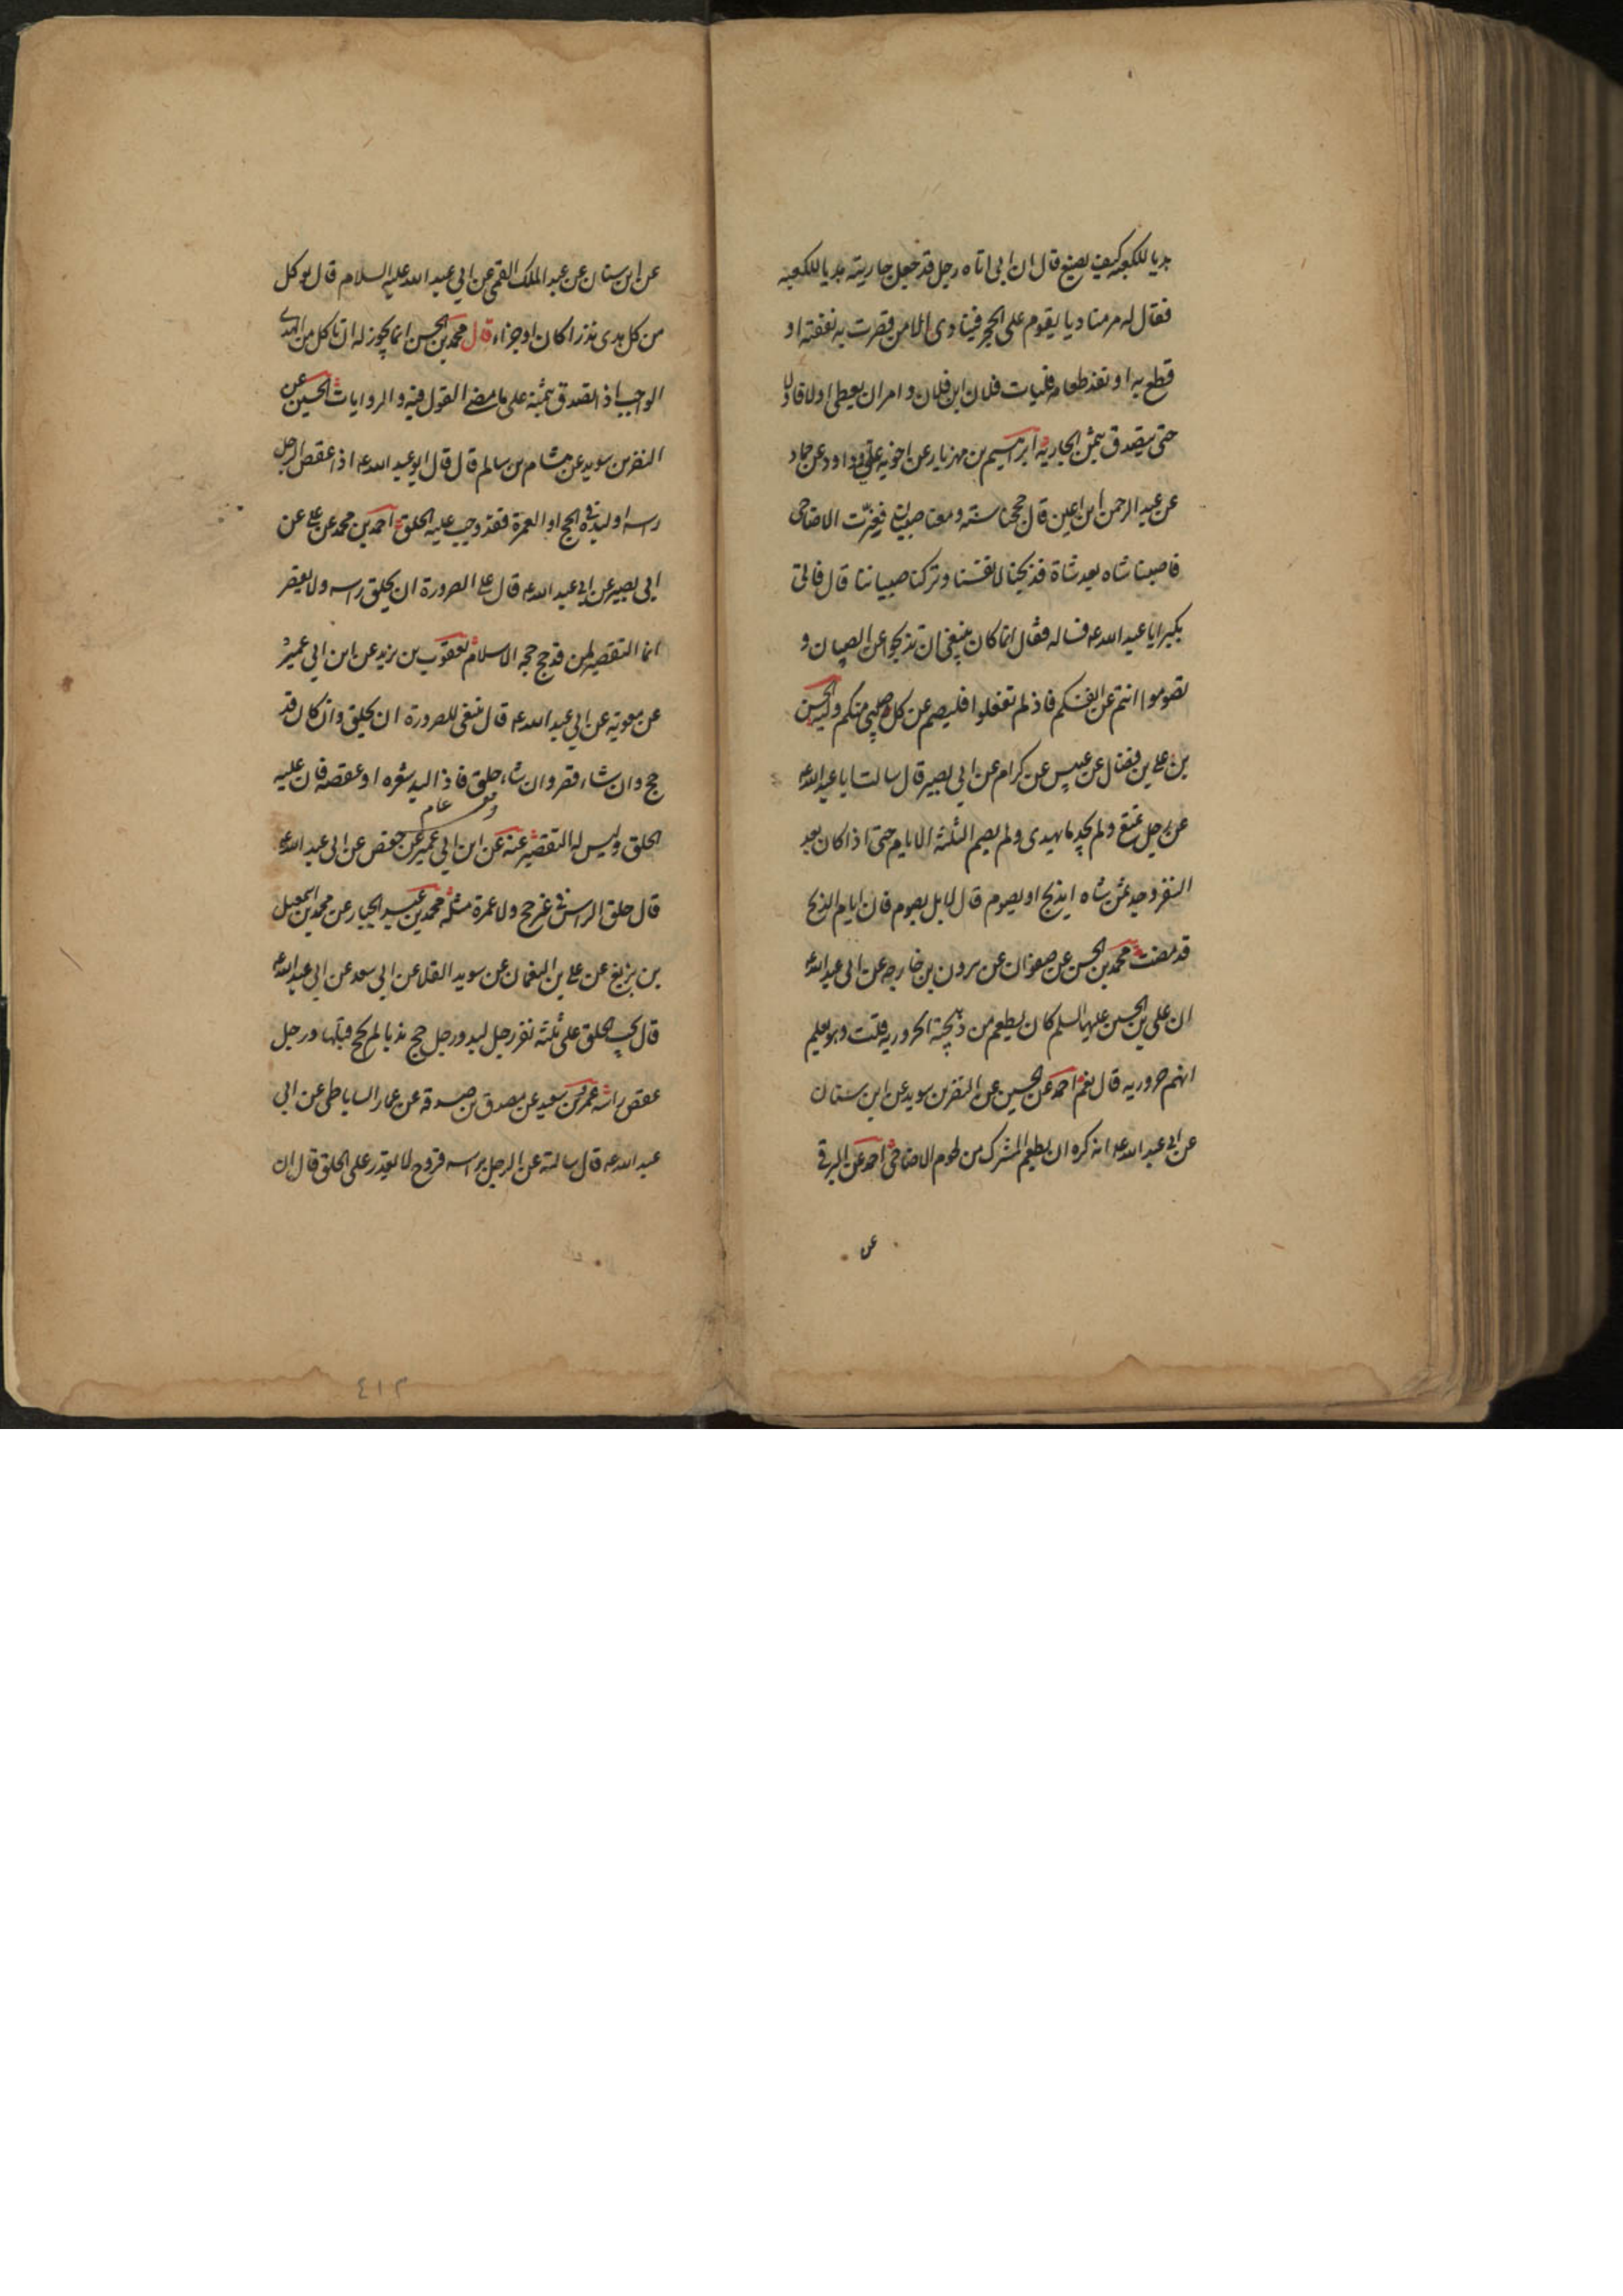 هديا للكعبه كيف يصنع قال ان ابي اتاه رجل قد جعل جاريته هديا للكعبه
فقال له مر مناديا يقوم على الحجر فينادى الا من قصرت به نفقته او
قطع به او نفد طعامه فليات فلان ابن فلان وامر ان يعطى اولا فاولا
حتى يتصدق بثمن الجاريه ابراهيم بن مهزيار عن اخويه علي وداود عن حماد
عن عبد الرحمن ابن اعين قال حججنا سنة ومعنا صبيان فعزت الاضاحى
فاصبنا شاه بعد شاة فذبحنا لانفسنا وتركنا صبياننا قال فاتى
بكير ابا عبد الله ع فساله فقال انما كان ينبغى ان تذبحوا عن الصبيان و
تصوموا انتم عن انفسكم فاذ لم تفعلوا فليصم عن كل صبي منكم وليه الحسن
بن على بن فضال عن عبيس عن كرام عن ابي بصير قال سالت ابا عبد الله ع
عن رجل تمتع ولم يجد ما يهدى ولم يصم الثلثة الايام حتى اذا كان بعد
النفر وجد ثمن شاه ايذبح او يصوم قال لا بل يصوم فان ايام الذبح
قد مضت محمد بن الحسن عن صفوان عن هرون بن خارجه عن ابي عبد الله ع
ان على بن الحسين عليهما السلم كان يطعم من ذبيحته الحروريه قلت وهو يعلم
انهم حروريه قال نعم احمد عن الحسين عن النضر بن سويد عن ابن سنان
عن ابي عبد الله ع انه كره ان يطعم المشرك من لحوم الاضاحى احمد عن البرقى
عن
عن ابن سنان عن عبد الملك القمى عن ابي عبد الله عليه السلام قال يوكل
من كل هدى نذرا كان او جزاء قال محمد بن الحسن انما يجوز له ان ياكل من الهدى
الواجب اذا تصدق بثمنه على ما مضى القول فيه والروايات الحسين عن
النضر بن سويد عن هشام بن سالم قال قال ابو عبد الله ع اذا عقص الرجل
راسه او لبده في الحج او العمرة فقد وجب عليه الحلق احمد بن محمد عن على عن
ابي بصير عن ابي عبد الله ع قال على الصرورة ان يحلق راسه ولا يقصر
انما التقصير لمن قد حج حجه الاسلام يعقوب بن يزيد عن ابن ابي عمير
عن معويه عن ابي عبد الله ع قال ينبغى للصرورة ان يحلق وان كان قد
حج وان شاء قصر وان شاء حلق فاذا لبد شعره او عقصه فان عليه
الحلق وليس له التقصير عنه عن ابن ابي عمير عن حفص عن ابي عبد الله ع
قال حلق الراس في غير حج ولا عمرة مثله محمد بن عبد الجبار عن محمد بن اسمعيل
بن بزيع عن على بن النعمان عن سويد القلا عن ابي سعد عن ابي عبد الله ع
قال يجب الحلق على ثلثة نفر رجل لبد ورجل حج بديا لم يحج قبلها ورجل
عقص راسه عمرو بن سعيد عن مصدق بن صدقة عن عمار الساباطى عن ابي
عبد الله ع قال سالته عن الرجل براسه قروح لا يقدر على الحلق قال ان
٤١٢